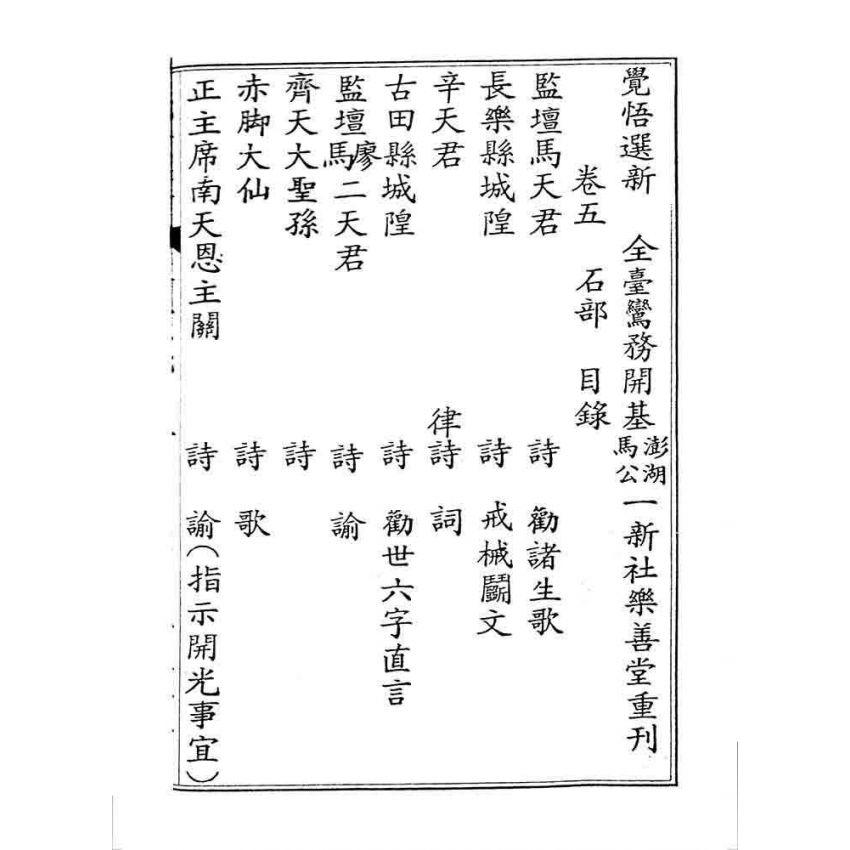 覺悟選新　全臺鸞務開基澎湖馬公一新社樂善堂重刊
卷五　石部　目錄
監壇馬天君　詩　勸諸生歌
長樂縣城隍　詩　戒械鬭文
辛天君　律詩　詞
古田縣城隍　詩　勸世六字直言
監壇廖馬二天君　詩　諭
齊天大聖孫　詩
赤脚大仙　詩　歌
正主席南天恩主關　詩　諭（指示開光事宜）